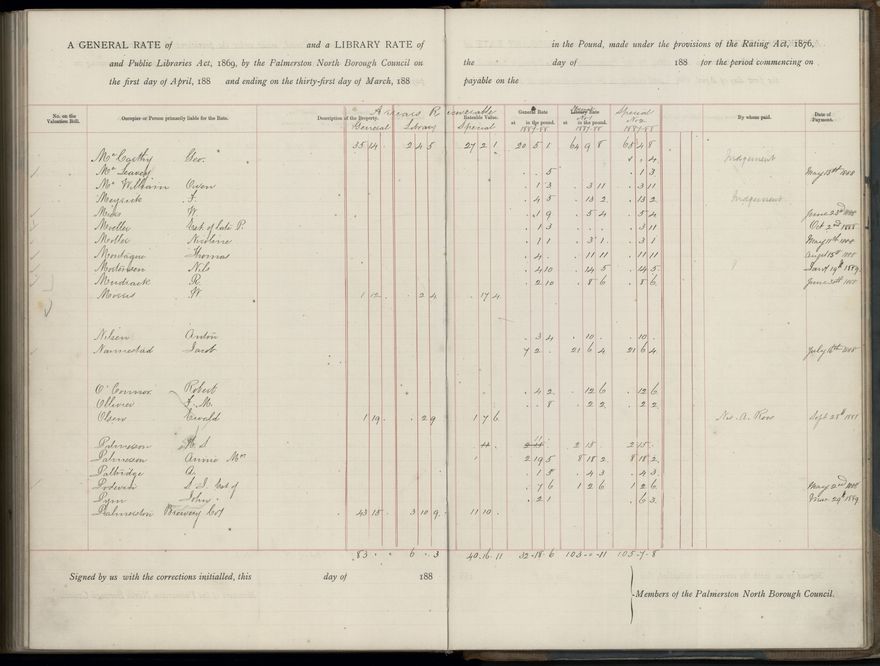 A GENERAL RATE of and a LIBRARY RATE of in the Pound, made under the provisions of the Rating Act, 1876,
and Public Libraries Act, 1869, by the Palmerston North Borough Council on the day of 188 for the period commencing on
the first day of April, 188 and ending on the thirty-first day of March, 188 payable on the
Arrears Recoverable
No. on the Valuation Roll. Occupier or Person primarily liable for the Rate. Description of the Property. Rateable Value. General Rate at in the pound. Library Rate at in the pound. Special No 2 By whom paid. Date of Payment.
General Library Special 1887-88 1887-88 1887-88
35 14 . 2 4 5 27 2 1 20 5 1 64 9 8 68 4 8
McCarthy Geo. . 4 Judgement
. . 5 . 1 3 1888
McWilliam Owen . 1 3 . 3 11 . 3 11
Meyrick F. . 4 5 . 13 2 . 13 2 Judgement
W. . 1 9 . 5 4 . 5 4 June 23rd 1888
Est of late P. . 1 3 . 3 11 Oct 2nd 1888
. 1 1 . 3 1 . 3 1 May
Montague Thomas . 4 . . 11 11 . 11 11 Augt 15th
Mortensen Nils . 4 10 . 14 5 . 14 5 Jany 19th 1889
R. . 2 10 . 8 6 . 8 6 June
Morris W 1 12 . . 2 4 . 17 4
Nilsen Anton . 3 4 . 10 . . 10 .
Namestad Jacob 7 2 . 21 6 4 21 6 4 July 18th 1888
O'Connor Robert . 4 2 . 12 6 . 12 6
Ollivier F. M. . . 8 . 2 2 . 2 2
Olsen Ewald 1 19 . . 2 9 1 7 6 A. Ross Sept 28th 1888
Palmerson S 2 15 . 2 15 .
Palmerson Annie Mrs 2 19 5 8 18 2 8 18 2
Palbridge A. . 1 5 . 4 3 . 4 3
Podevin S. J. Est of . 7 6 1 2 6 1 2 6 May 2nd 1888
Pym John . 2 1 . 6 3 Mar. 29th 1889
Palmerston Brewery Coy 43 15 . 3 10 9 11 10 .
83 . . 6 . 3 40.16.11 32-18-6 103-.-11 105-7-8
Signed by us with the corrections initialled, this day of 188
Members of the Palmerston North Borough Council.